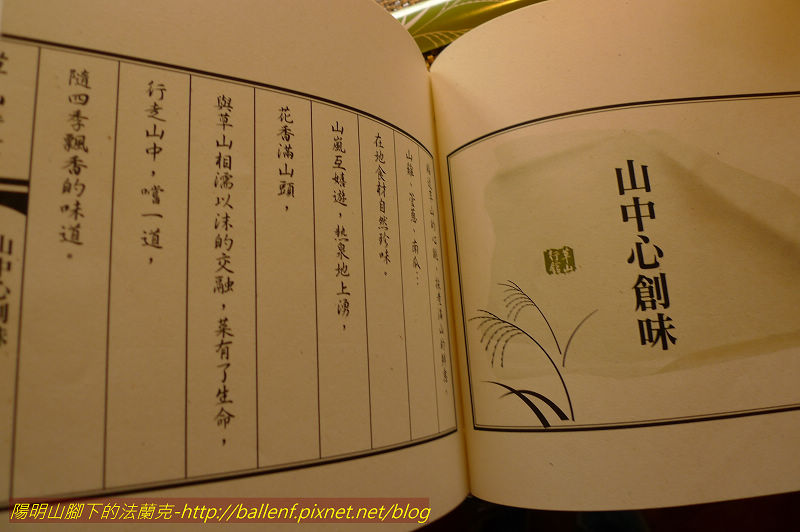 山中心創味
草山行館
草山的心跳，滿山的
山蘇、蔥、南瓜…
在地食材自然珍味。
山嵐互嬉遊，熱泉地上湧，
花香滿山頭，
與草山相濡以沫的交融，菜有了生命，
行走山中，嚐一道，
隨四季飄香的味道。
山中心創味
陽明山腳下的法蘭克-http://ballenf.pixnet.net/blog